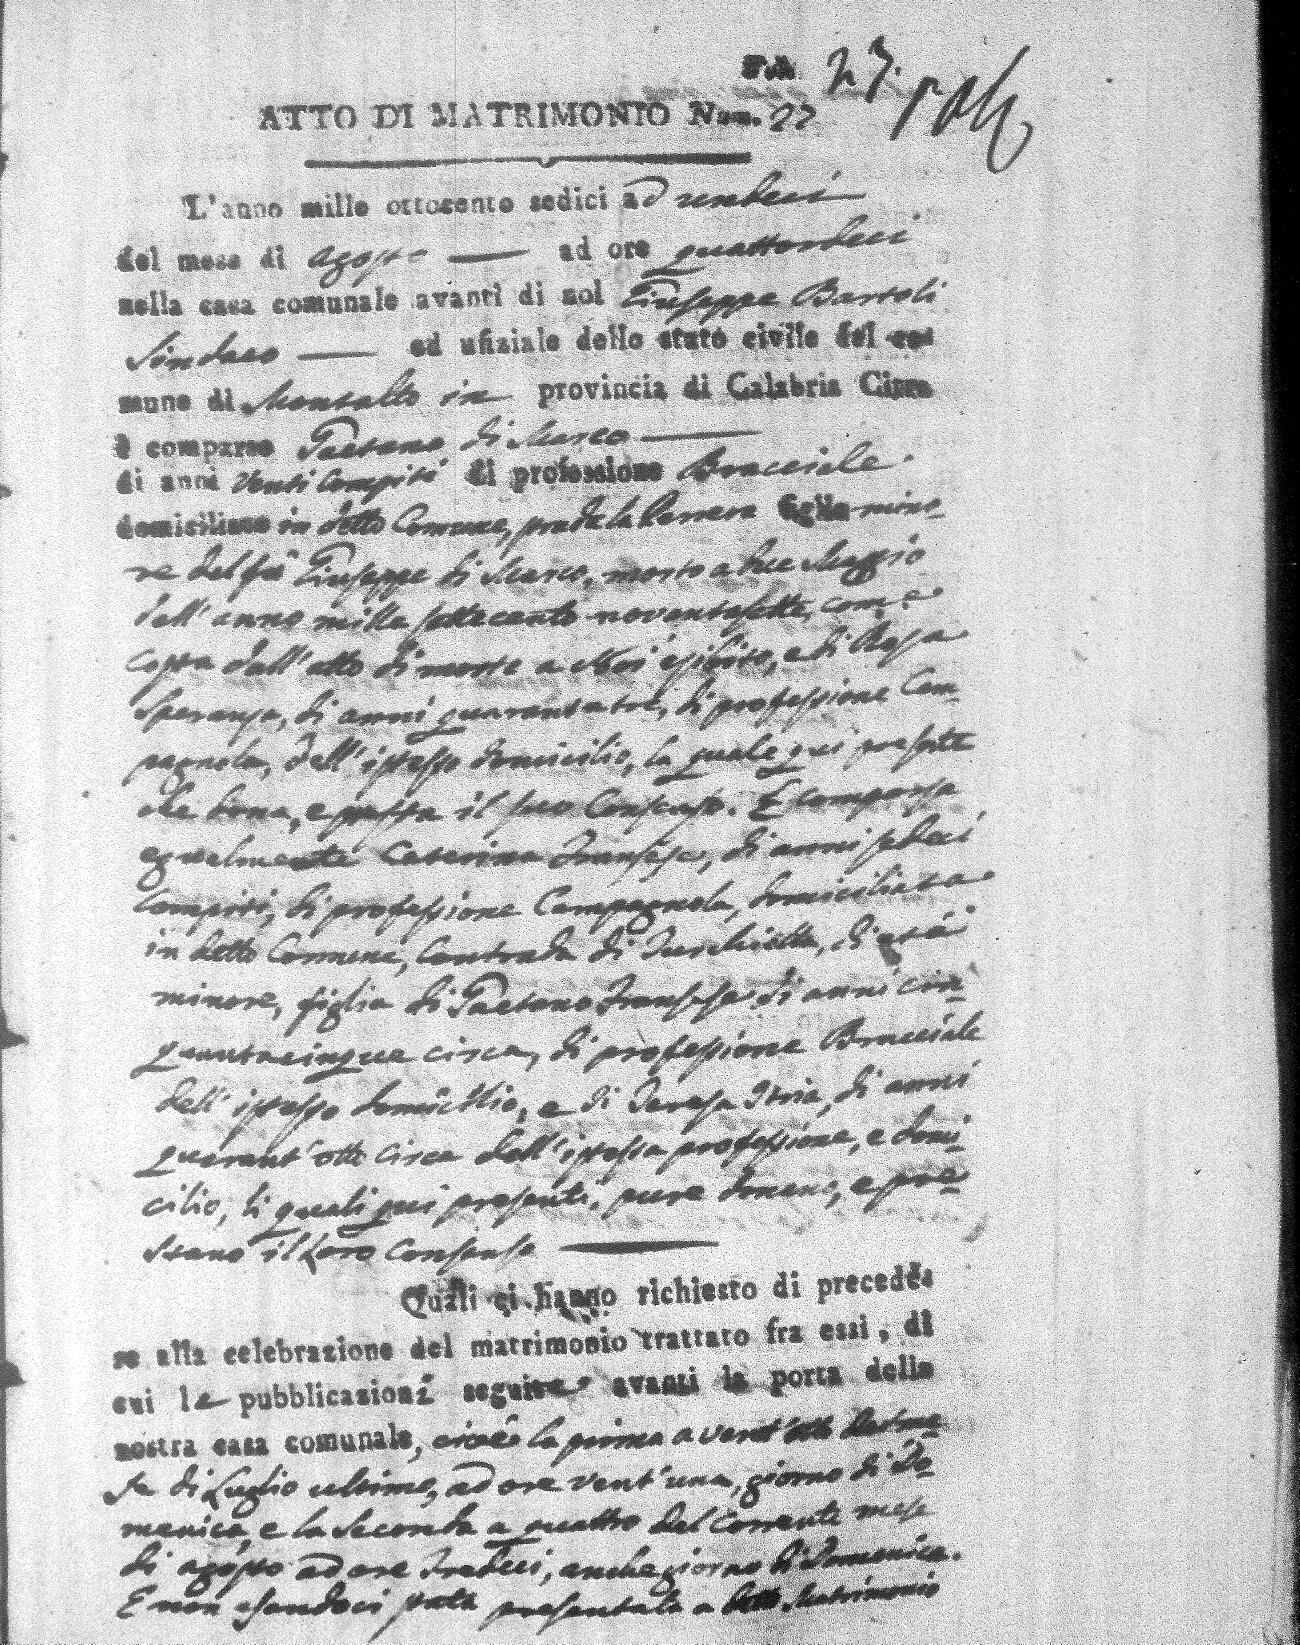 Fol. 27.
ATTO DI MATRIMONIO Num. 27
L'anno mille ottocento sedici ad undeci
del mese di agosto ad ore quattordeci
nella casa comunale avanti di noi Giuseppe Bartoli
Sindaco ed ufiziale dello stato civile del co-
mune di Montalto in provincia di Calabria Citra
è comparso Gaetano di Marco
di anni venti compiti di professione Bracciale
domiciliato in detto Comune, figlio mino-
re del fu Giuseppe di Marco, morto a due Maggio
dell'anno mille settecento novantasette, come
costa dall'atto di morte a Noi esibito, e di Rosa
Speranza, di anni quarantatre, di professione Cam-
pagnola, dell'istesso domicilio, la quale qui presente
che dona, e presta il suo Consenso. È comparsa
egualmente Caterina di anni sedeci
compiti, di professione Campagnola, domiciliata
in detto Comune, Contrada di di età
minore, figlia di Gaetano di anni cin-
quantacinque circa, di professione Bracciale
dell'istesso domicilio, e di Teresa Iorio, di anni
quarant'otto circa dell'istessa professione, e domi-
cilio, li quali qui presenti, pure donano, e pre-
stano il loro Consenso
Quali ci hanno richiesto di precede-
re alla celebrazione del matrimonio trattato fra essi, di
cui le pubblicazioni seguite avanti la porta della
nostra casa comunale, cioè la prima a vent'otto del me-
se di Luglio ultimo, ad ore vent'una, giorno di Do-
menica, e la seconda a quattro del corrente mese
di agosto ad ore tredeci, anche giorno di Domenica.
E non essendoci stata presentata a detto Matrimonio